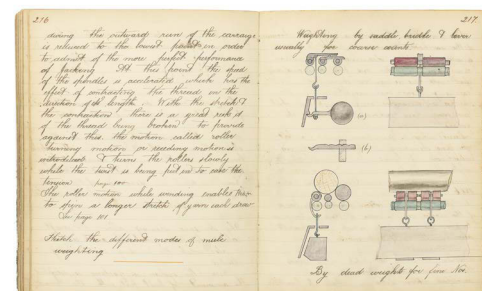 216
during the outward run of the carriage
is released to the lowest point in order
to admit of the more perfect performance
of jacking. At this point the speed
of the spindles is accelerated which has the
effect of contracting the thread in the
direction of its length. With the stretch &
the contraction there is a great risk of
of the thread being broken to provide
against this the motion called roller
turning motion or receding motion is
introduced & turns the rollers slowly
while the twist is being put in to ease the
tension page 100
The roller motion while winding enables
to give a longer stretch of yarn each draw
See page 101
Sketch the different modes of mule
weighting
217
Weighting by saddle bridle & lever
usually for coarse counts
(a)
(b)
By dead weights for fine Nos